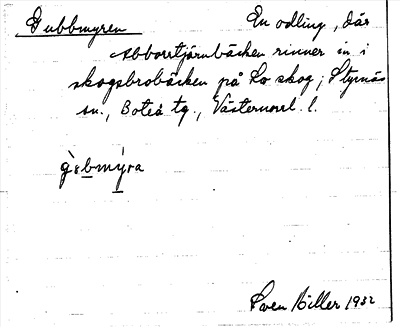 Gubbmyren En odling, där
Abborrtjärnbäcken rinner in i
skogsbrobäcken på Lo skog; Styrnäs
sn., Boteå tg., Västernorrl. l.
g̀ɞbmýra
Sven Hiller 1932